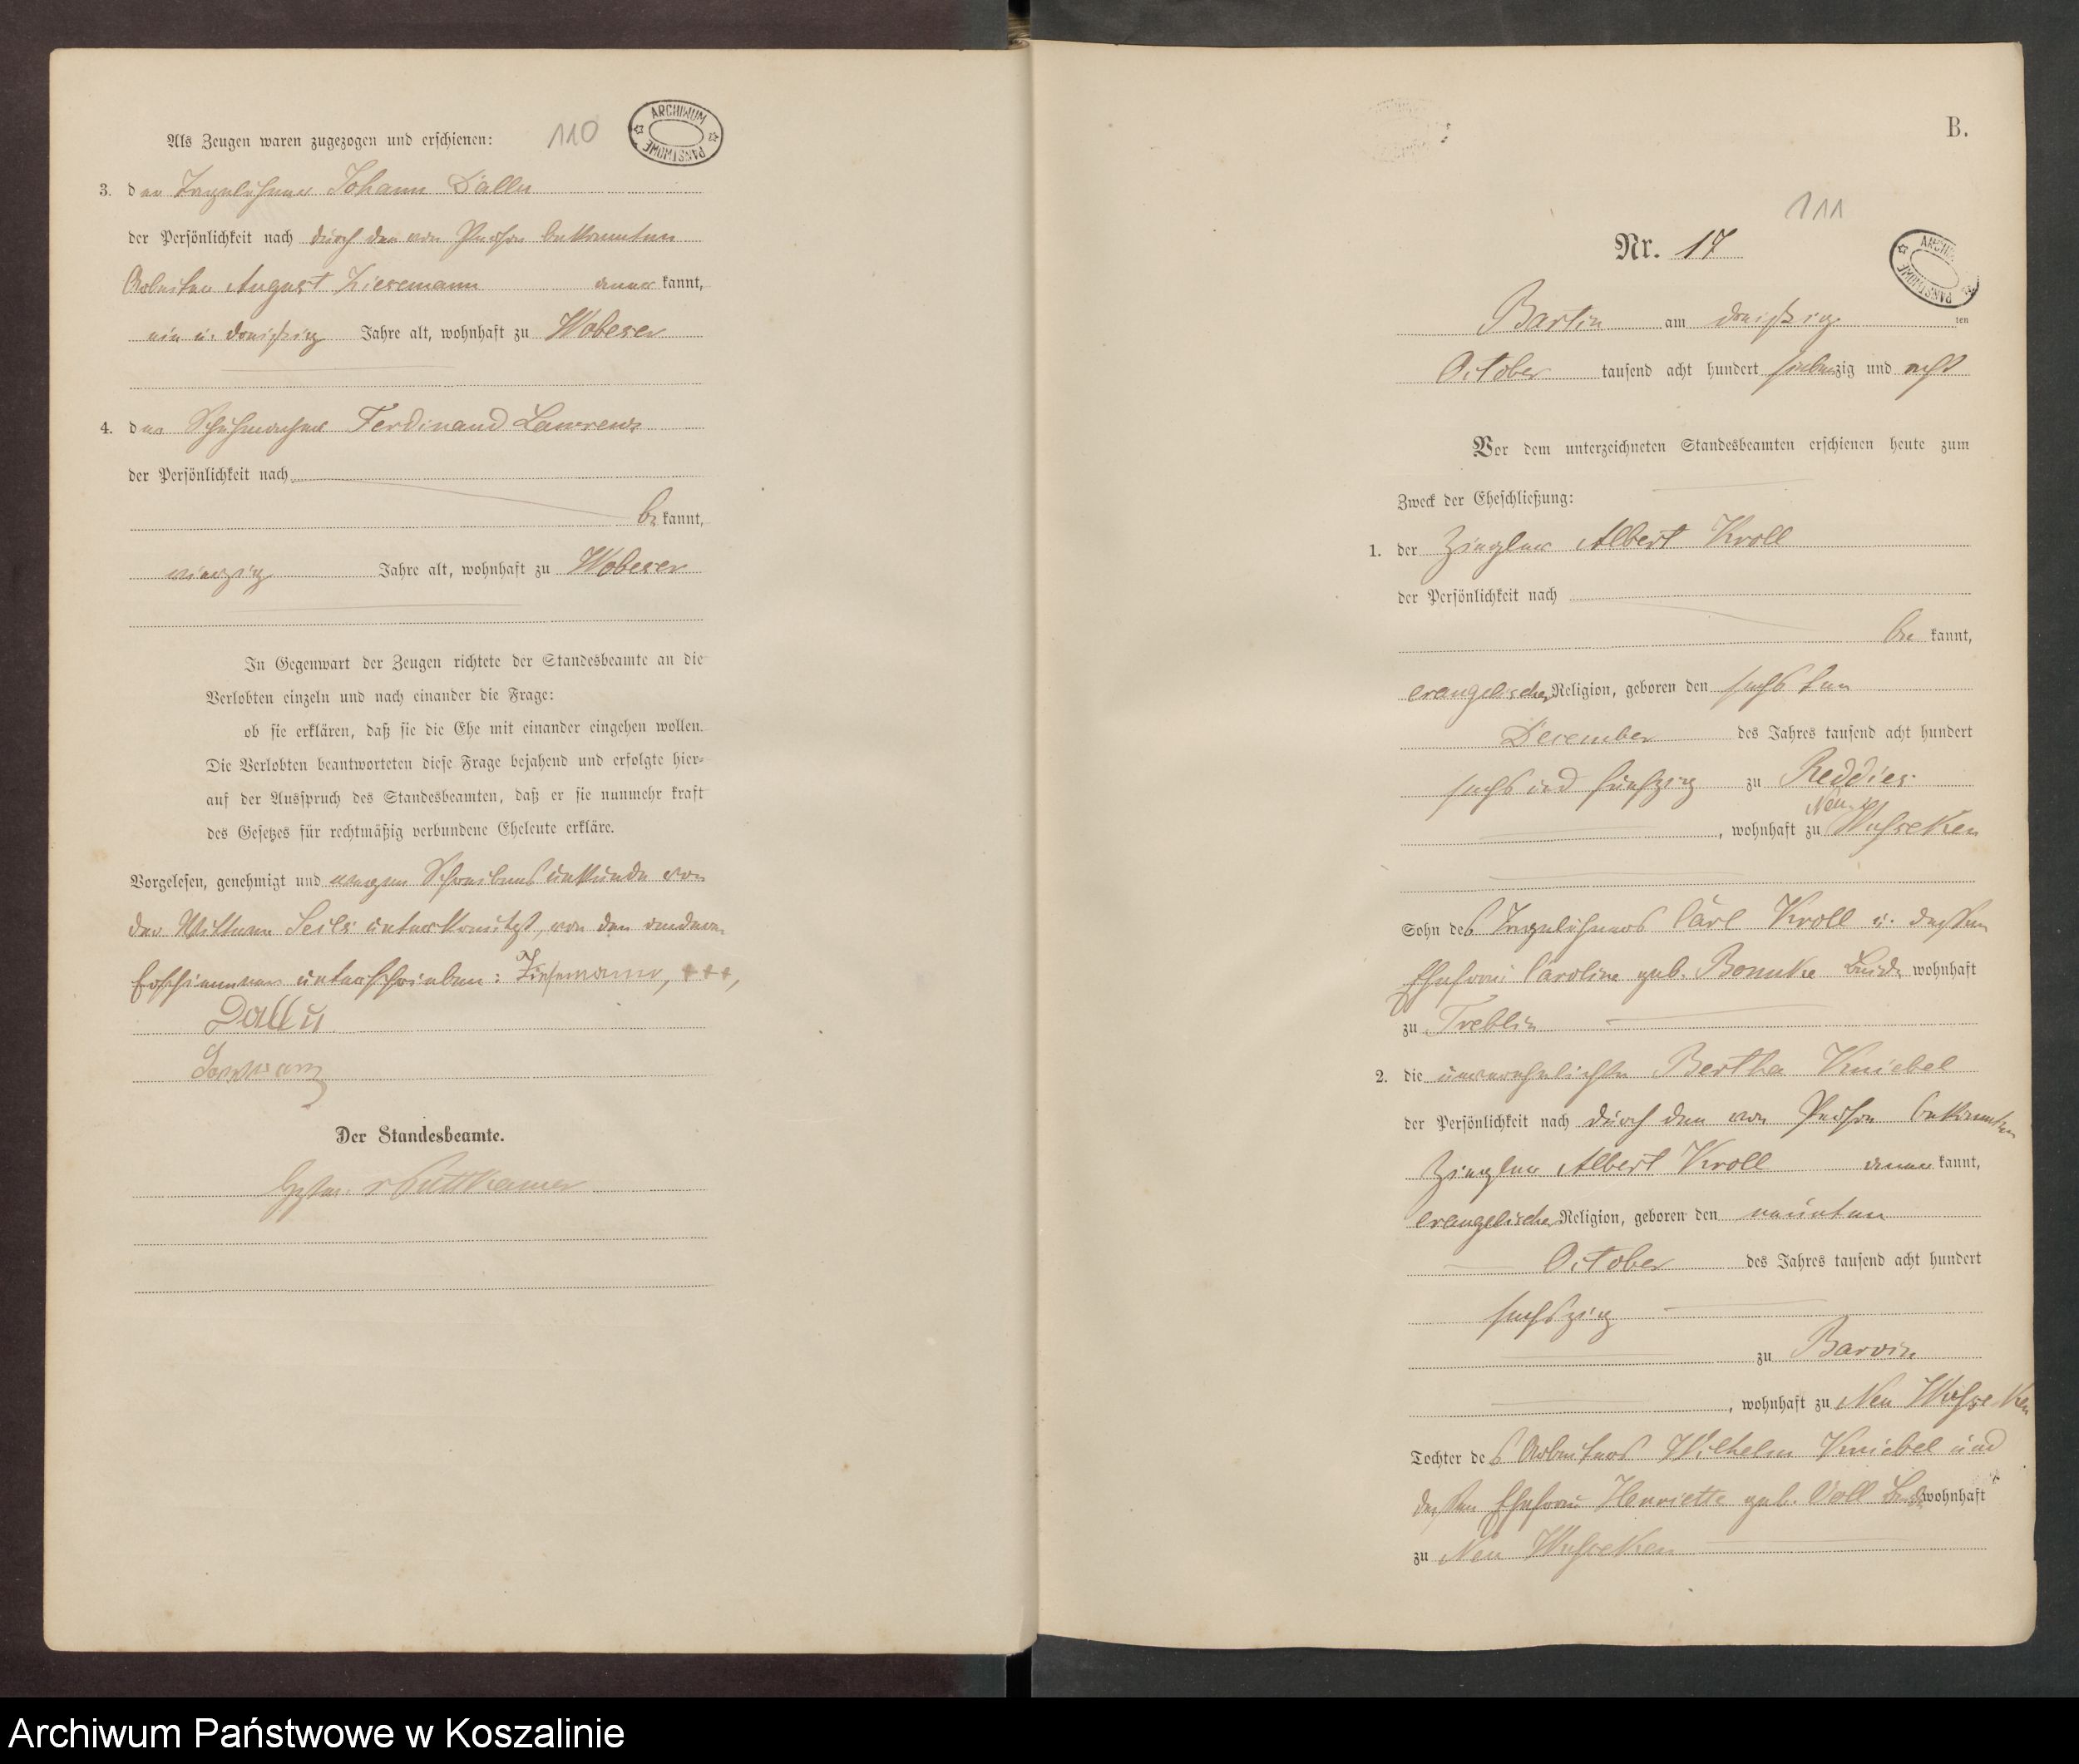 110
ARCHIWUM PAŃSTWOWE
Als Zeugen waren zugezogen und erschienen:
3. der Tagelöhner Johann Dallu
der Persönlichkeit nach durch den von Person bekannten
Arbeiter August Ziesemann aner kannt,
ein u. dreißig Jahre alt, wohnhaft zu Wobeser
4. der Schuhmacher Ferdinand Lawrenz
der Persönlichkeit nach
be kannt,
vierzig Jahre alt, wohnhaft zu Wobeser
In Gegenwart der Zeugen richtete der Standesbeamte an die
Verlobten einzeln und nach einander die Frage:
ob sie erklären, daß sie die Ehe mit einander eingehen wollen.
Die Verlobten beantworteten diese Frage bejahend und erfolgte hier-
auf der Ausspruch des Standesbeamten, daß er sie nunmehr kraft
des Gesetzes für rechtmäßig verbundene Eheleute erkläre.
Vorgelesen, genehmigt und wegen Schreibensunkunde von
der Wittwe Seils unterkreuzt, von den anderen
Erschienenen unterschrieben: Ziesemann, +++,
Dallu
Lawrenz
Der Standesbeamte.
v Puttkamer
B.
111
Nr. 17
ARCHIWUM PAŃSTWOWE
Bartin am dreißig ten
October tausend acht hundert siebenzig und acht
Vor dem unterzeichneten Standesbeamten erschienen heute zum
Zweck der Eheschließung:
1. der Ziegler Albert Kroll
der Persönlichkeit nach
be kannt,
evangelischer Religion, geboren den sechsten
December des Jahres tausend acht hundert
sechs und fünfzig zu Reddies
Neu
, wohnhaft zu Wusseken
Sohn des Tagelöhners Carl Kroll u. dessen
Ehefrau Caroline geb. Bomke Beide wohnhaft
zu Treblin
2. die unverehelichte Bertha Kniebel
der Persönlichkeit nach durch den von Person bekannten
Ziegler Albert Kroll aner kannt,
evangelischer Religion, geboren den neunten
October des Jahres tausend acht hundert
sechszig
zu Barvin
, wohnhaft zu Neu Wusseken
Tochter des Arbeiters Wilhelm Kniebel und
dessen Ehefrau Henriette geb. Voll Beide wohnhaft
zu Neu Wusseken
Archiwum Państwowe w Koszalinie